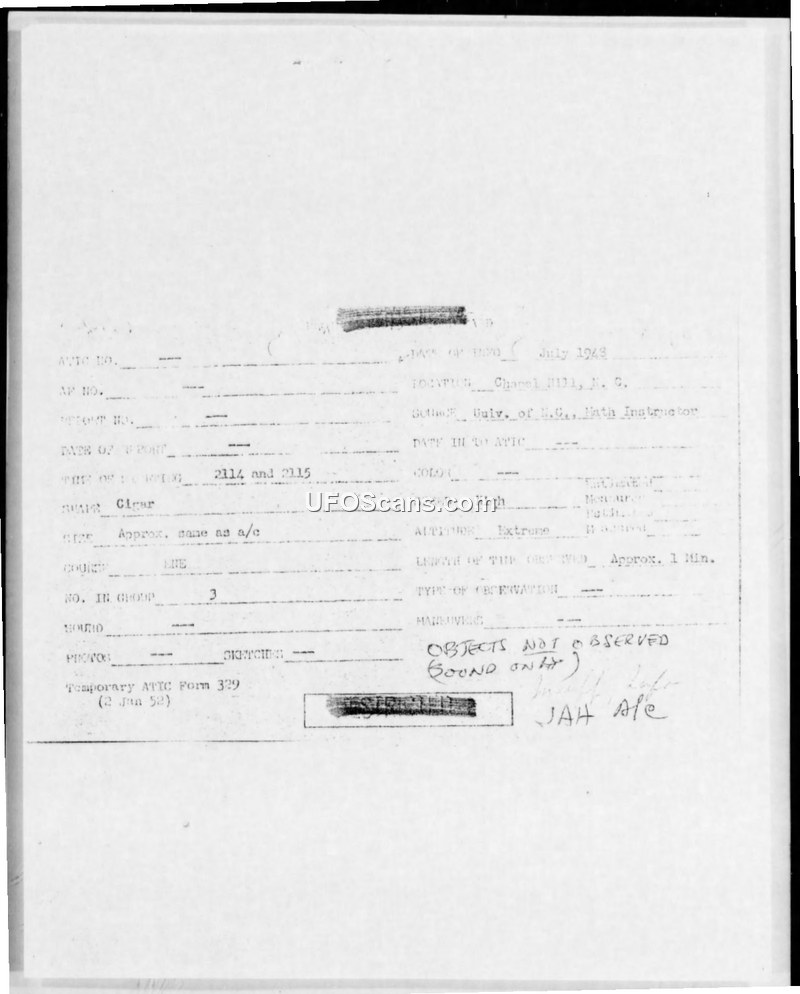 ATIC NO. --- DATE OF INFO July 1948
AF NO. --- LOCATION Chapel Hill, N. C.
REPORT NO. --- SOURCE Univ. of N.C., Math Instructor
DATE OF REPORT --- DATE IN TO ATIC ---
TIME OF SIGHTING 2114 and 2115 COLOR ---
SHAPE Cigar High
SIZE Approx. same as a/c ALTITUDE Extreme
COURSE ENE LENGTH OF TIME OBSERVED Approx. 1 Min.
NO. IN GROUP 3 TYPE OF OBSERVATION ---
SOUND --- MANEUVERS ---
PHOTOS --- SKETCHES ---
OBJECTS NOT OBSERVED
(SOUND ONLY)
Temporary ATIC Form 329
(2 Jan 52)
RESTRICTED
JAH A/c
UFOScans.com